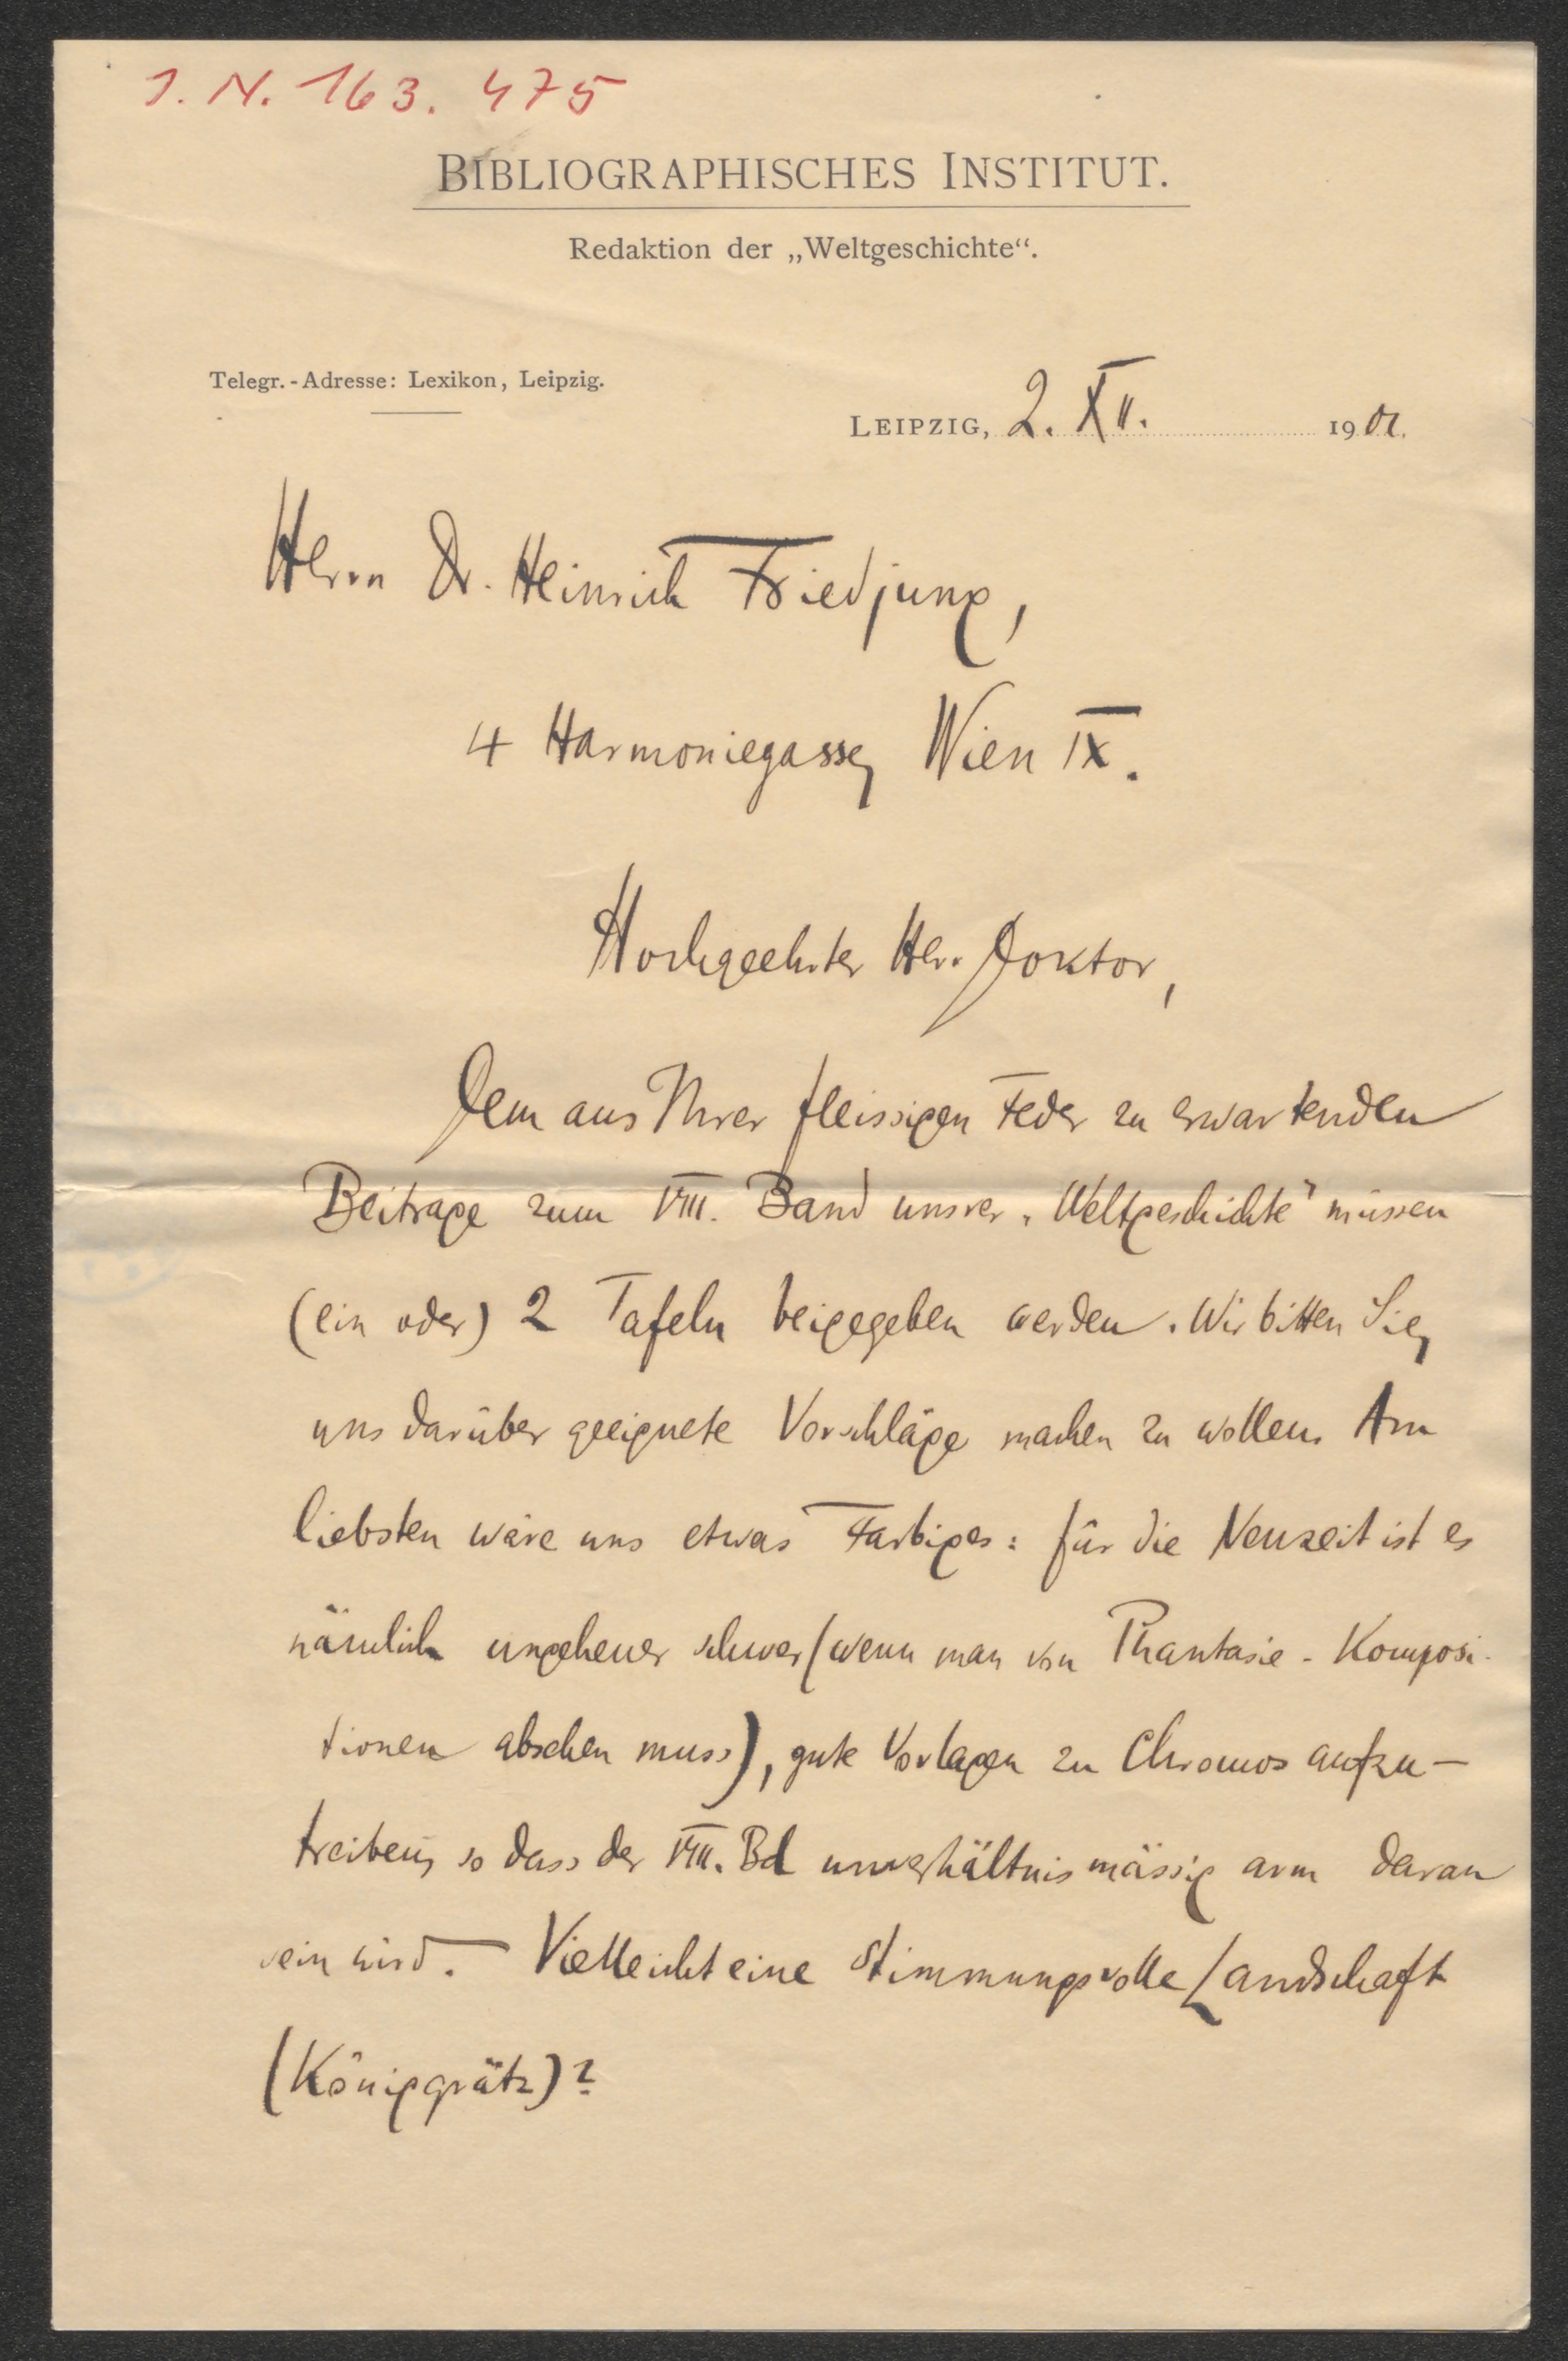 I. N. 163. 475
BIBLIOGRAPHISCHES INSTITUT.
Redaktion der „Weltgeschichte“.
Telegr.-Adresse: Lexikon, Leipzig.
LEIPZIG, 2. XII. 1901.
Herrn Dr. Heinrich Friedjung,
4 Harmoniegasse, Wien IX.
Hochgeehrter Herr Doktor,
Dem aus Ihrer fleissigen Feder zu erwartenden
Beitrage zum VIII. Band unsrer „Weltgeschichte“ müssen
(ein oder) 2 Tafeln beigegeben werden. Wir bitten Sie,
uns darüber geeignete Vorschläge machen zu wollen. Am
liebsten wäre uns etwas Farbiges: für die Neuzeit ist es
nämlich ungeheuer schwer (wenn man von Phantasie-Komposi-
tionen absehen muss), gute Vorlagen zu Chromos aufzu-
treiben, so dass der VIII. Bd unverhältnismässig arm daran
sein wird. – Vielleicht eine stimmungsvolle Landschaft
(Königgrätz)?